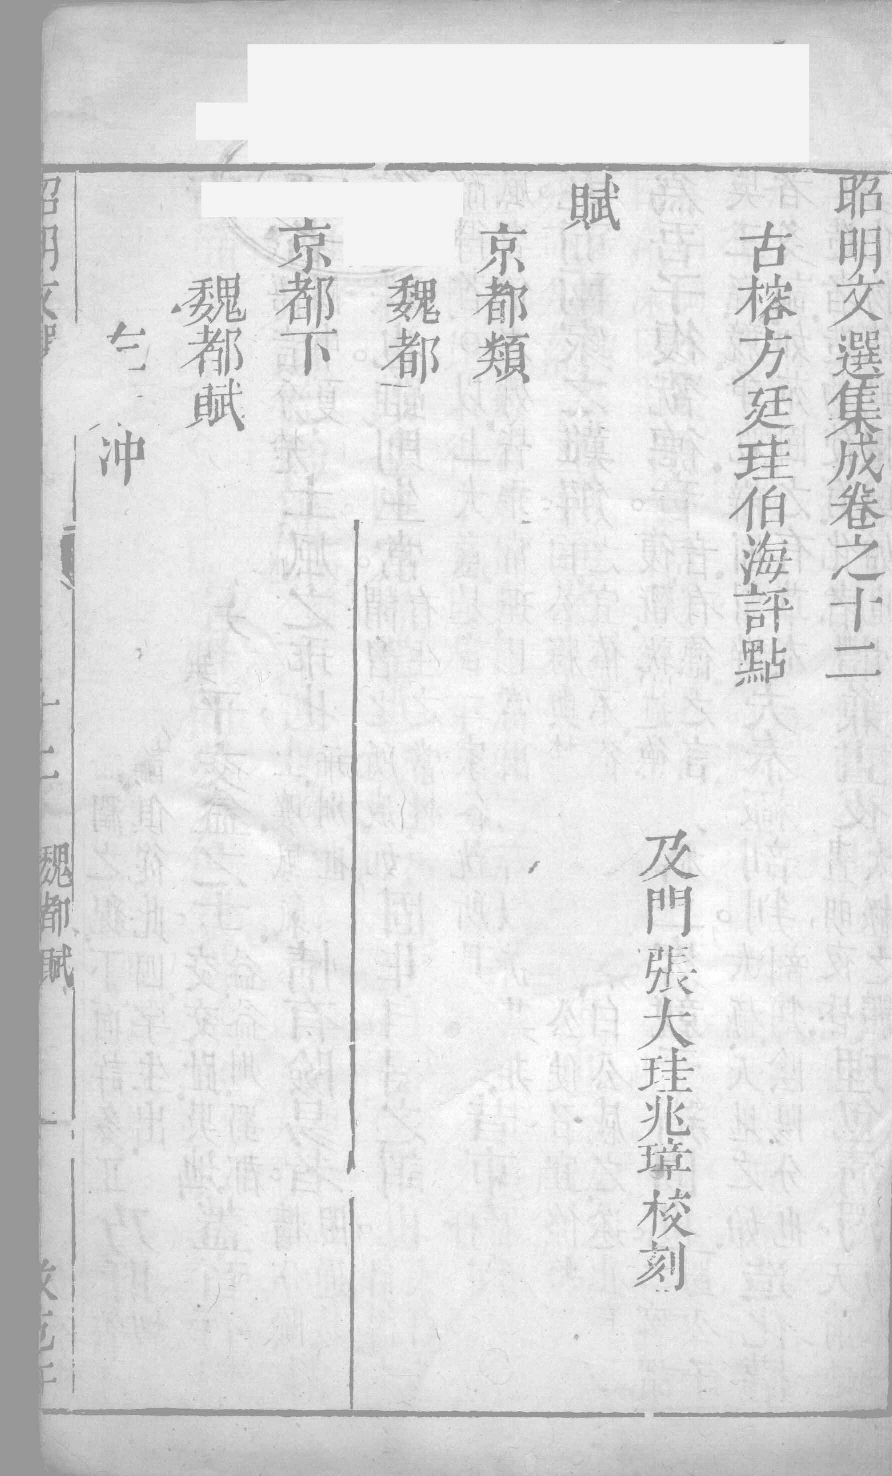 昭明文選集成卷之十二
古榕方廷珪伯海評點
及門張大珪兆璋校刻
賦
京都類
魏都
京都下
魏都賦
左沖
昭明文選
十二
魏都賦
一